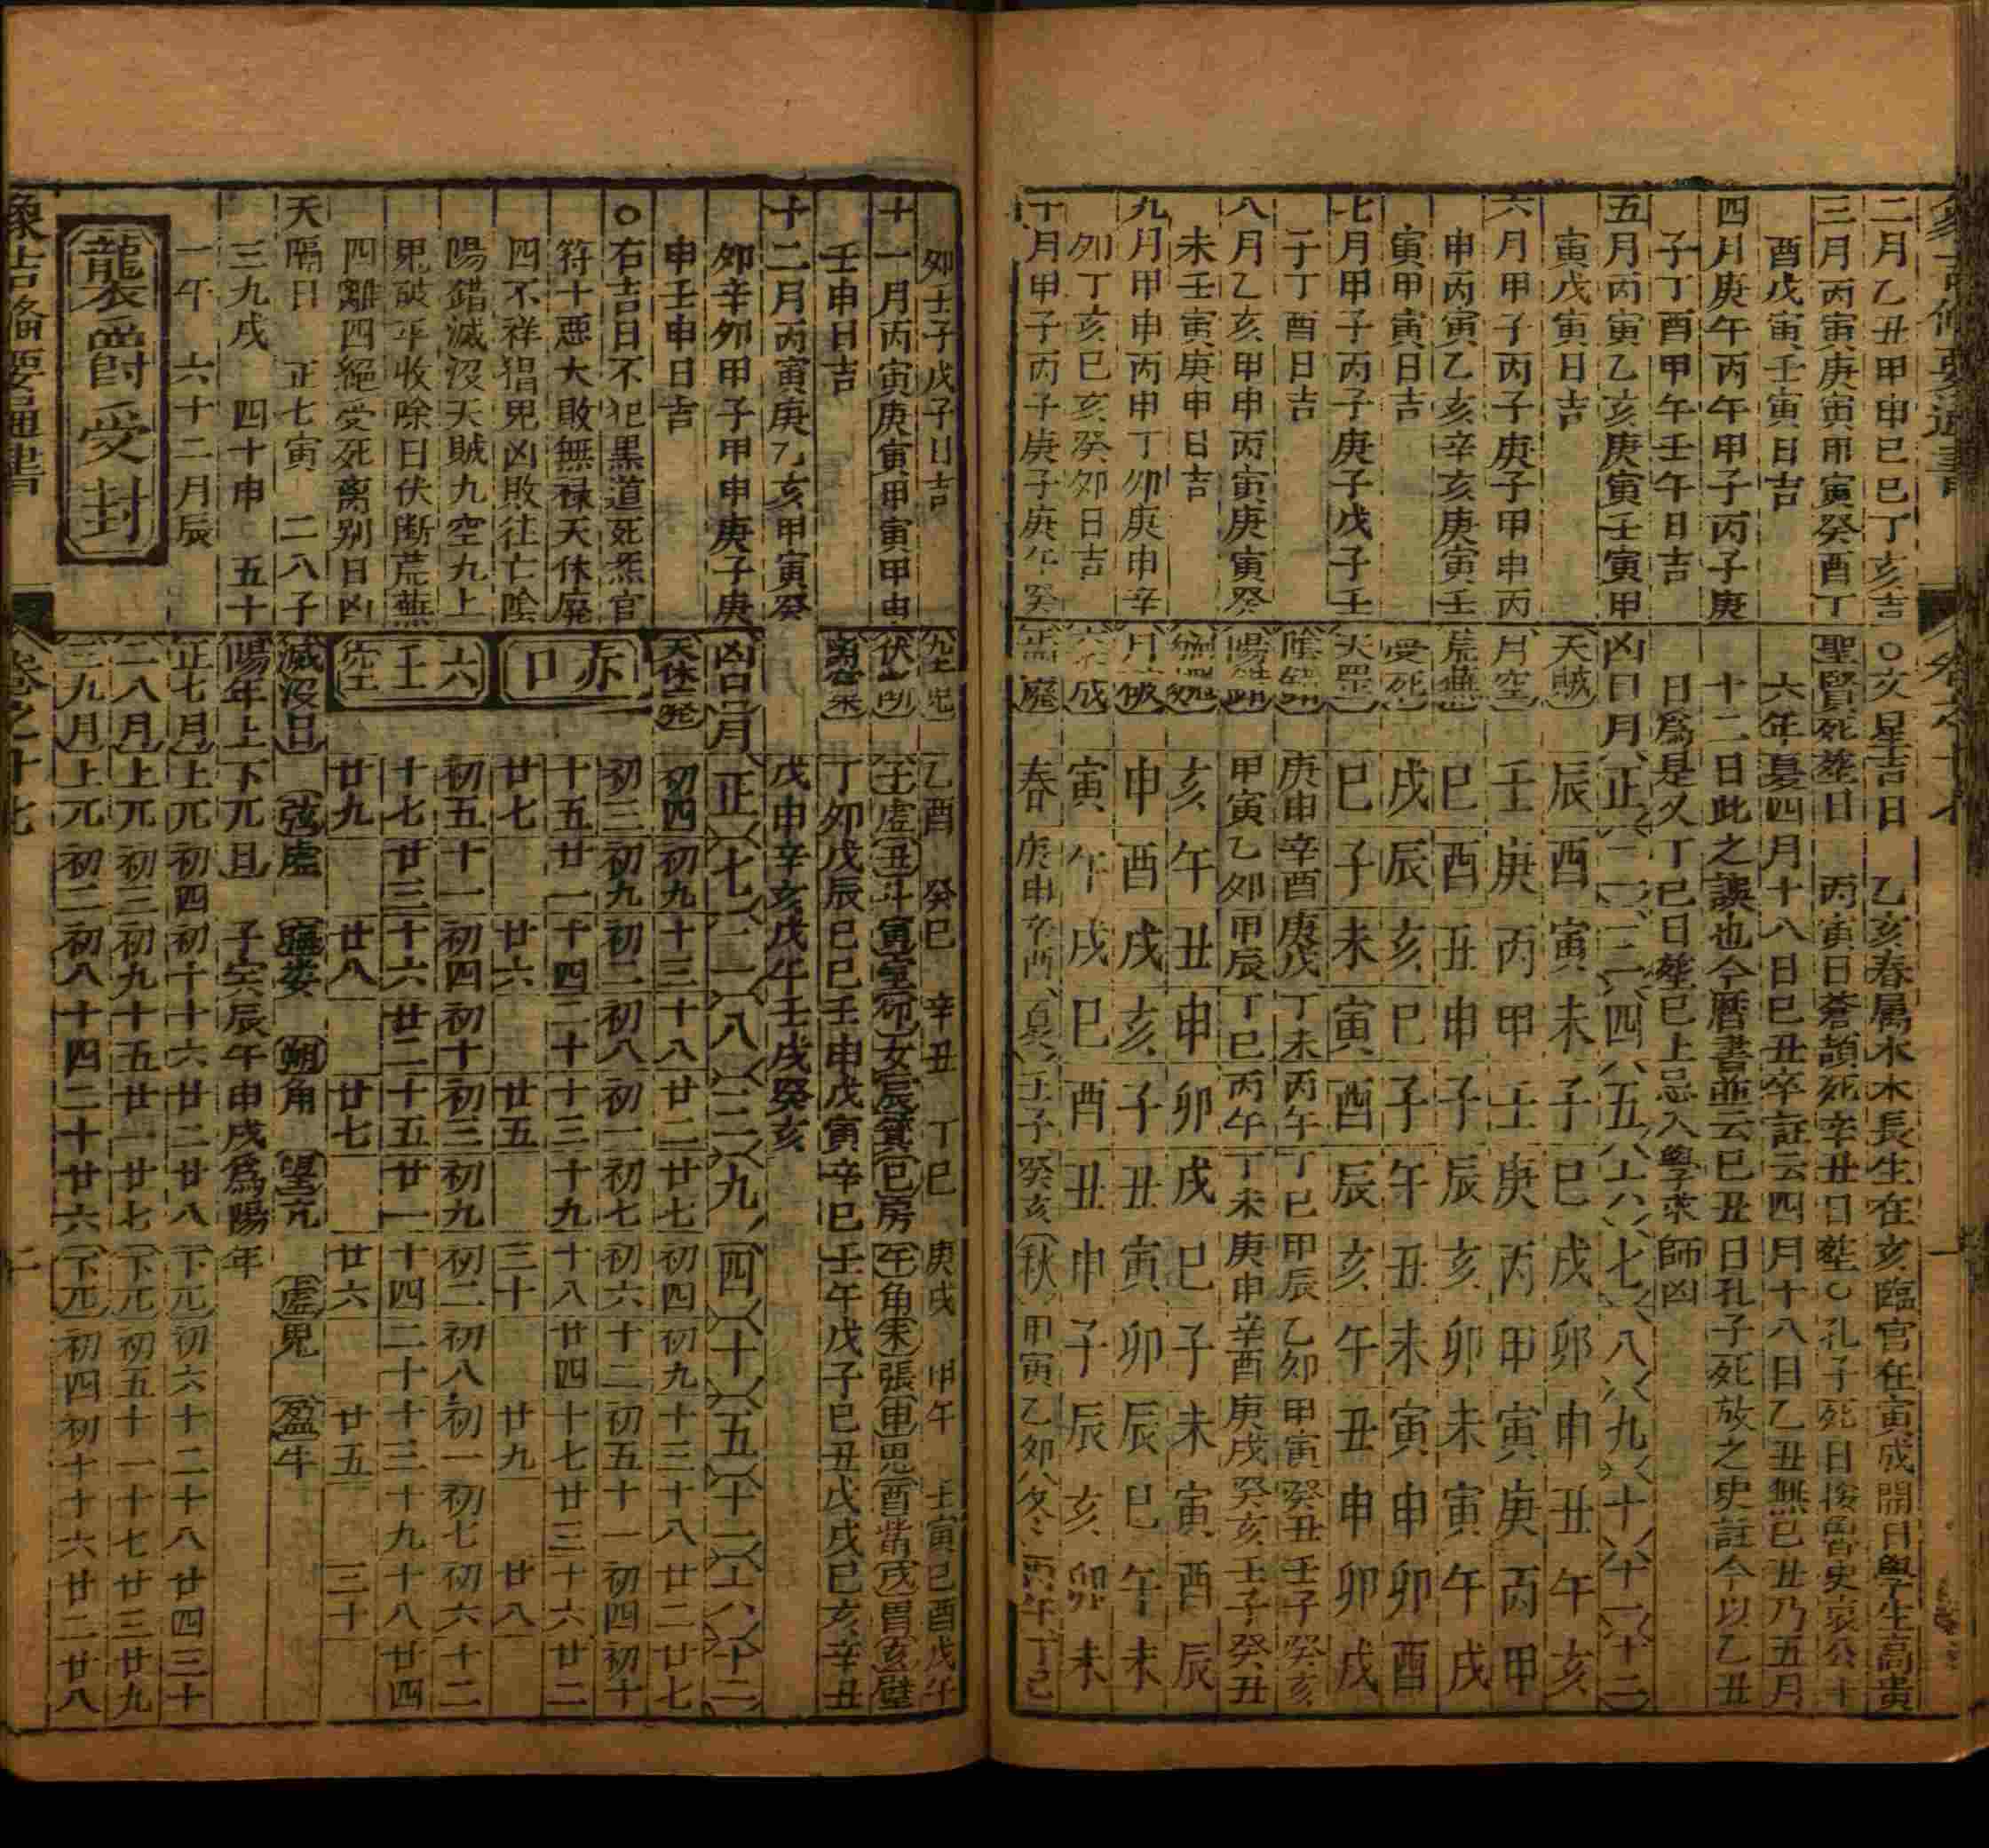 二月乙丑甲申己巳丁亥吉
三月丙寅庚寅甲寅癸酉丁
酉戊寅壬寅日吉
四月庚午丙午甲子丙子庚
子丁酉甲午壬午日吉
五月丙寅乙亥庚寅壬寅甲
寅戊寅日吉
六月甲子丙子庚子甲申丙
申丙寅乙亥辛亥庚寅壬
寅甲寅日吉
七月甲子丙子庚子戊子壬
子丁酉日吉
八月乙亥甲申丙寅庚寅癸
未壬寅庚申日吉
九月甲申丙申丁卯庚申辛
卯丁亥巳亥癸卯日吉
十月甲子丙子庚子庚午癸
○亥星吉日 乙亥春屬木木長生在亥臨官在寅成開日學生高貴
聖賢死塟日 丙寅日蒼頡死辛丑日塟○孔子死日按魯史哀公十
六年夏四月十八日巳丑卒註云四月十八日乙丑無巳丑乃五月
十二日此之誤也今曆書並云巳丑日孔子死放之史註今以乙丑
日爲是又丁巳日塟巳上忌入學求師凶
凶日月 正 二 三 四 五 六 七 八 九 十 十一 十二
天賊 辰 酉 寅 未 子 巳 戌 卯 申 丑 午 亥
月空 壬 庚 丙 甲 壬 庚 丙 甲 寅 庚 丙 甲
荒蕪 巳 酉 丑 申 子 辰 亥 卯 未 寅 午 戌
受死 戌 辰 亥 巳 子 午 丑 未 寅 申 卯 酉
天罡 巳 子 未 寅 酉 辰 亥 午 丑 申 卯 戌
陰錯 庚申 辛酉 庚戌 丁未 丙午 丁巳 甲辰 乙卯 甲寅 癸丑 壬子 癸亥
陽錯 甲寅 乙卯 甲辰 丁巳 丙午 丁未 庚申 辛酉 庚戌 癸亥 壬子 癸丑
亥 午 丑 申 卯 戌 巳 子 未 寅 酉 辰
月破 申 酉 戌 亥 子 丑 寅 卯 辰 巳 午 未
寅 午 戌 巳 酉 丑 申 子 辰 亥 卯 未
廢 春 庚申辛酉 夏 壬子癸亥 秋 甲寅乙卯 冬 丙午丁巳
卯壬子戊子日吉
十一月丙寅庚寅甲寅甲申
壬申日吉
十二月丙寅庚乙亥甲寅癸
卯辛卯甲子甲申庚子庚
申壬申日吉
○右吉日不犯黒道死炁官
符十惡大敗無禄天休廢
四不祥猖鬼凶敗往亡陰
陽錯滅没天賊九空九上
鬼破平收除日伏断荒蕪
四離四絕受死离别日凶
天隔日 正七寅 二八子
三九戌 四十申 五十
一午 六十二月辰
襲爵受封
乙酉 癸巳 辛丑 丁巳 庚戌 甲午 壬寅己酉戊午
伏断 子虛丑斗寅室卯女辰箕巳房午角未張申鬼酉觜戌胃亥壁
丁卯戊辰巳巳壬申戊寅辛巳壬午戊子巳丑戊戌巳亥辛丑
戊申辛亥戊午壬戌癸亥
凶日月 正 七 二 八 三 九 四 十 五 十一 六 十二
天休廢 初四 初九 十三 十八 廿二 廿七 初四 初九 十三 十八 廿二 廿七
赤口
初三 初九 初二 初八 初一 初七 初六 十二 初五 十一 初四 初十
十五 廿一 十四 二十 十三 十九 十八 廿四 十七 廿三 十六 廿二
廿七 廿六 廿五 三十 廿九 廿八
六壬空
初五 十一 初四 初十 初三 初九 初二 初八 初一 初七 初六 十二
十七 廿三 十六 廿二 十五 廿一 十四 二十 十三 十九 十八 廿四
廿九 廿八 廿七 廿六 廿五 三十
滅没日 弦虛 晦婁 朔角 望亢 虛鬼 盈牛
陽年上下兀且 子寅辰午申戌爲陽年
正七月 上兀 初四 初十 十六 廿二 廿八 下兀 初六 十二 十八 廿四 三十
二八月 上兀 初三 初九 十五 廿一 廿七 下兀 初五 十一 十七 廿三 廿九
三九月 上兀 初二 初八 十四 二十 廿六 下兀 初四 初十 十六 廿二 廿八
象吉備要通書
卷之十七
二